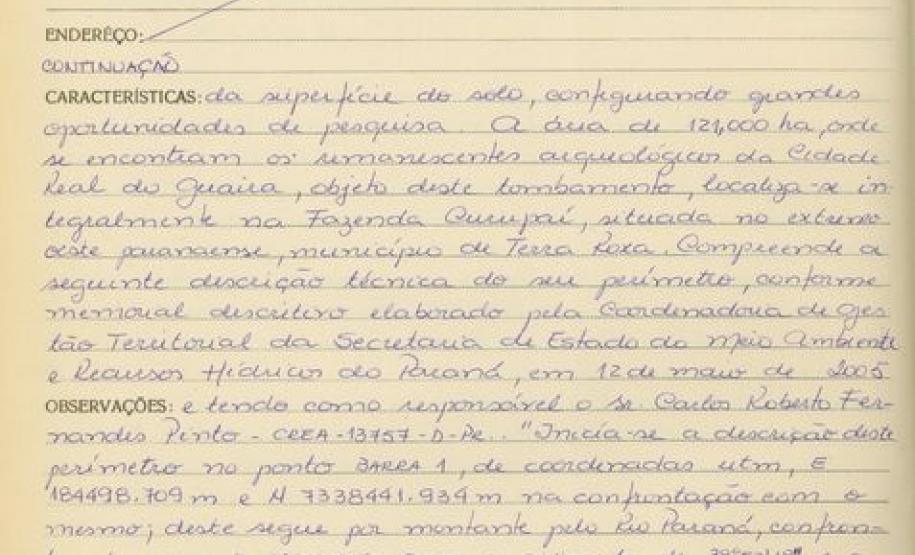 ENDERÊÇO:
CONTINUAÇÃO
CARACTERÍSTICAS: da superfície do solo, configurando grandes
oportunidades de pesquisa. A área de 121,000 ha, onde
se encontram os remanescentes arqueológicos da Cidade
Real do Guaíra, objeto deste tombamento, localiza-se in-
tegralmente na Fazenda Curupaí, situada no extremo
oeste paranaense, município de Terra Roxa. Compreende a
seguinte descrição técnica do seu perímetro, conforme
memorial descritivo elaborado pela Coordenadoria de Ges-
tão Territorial da Secretaria de Estado do Meio Ambiente
e Recursos Hídricos do Paraná, em 12 de maio de 2005
OBSERVAÇÕES: e tendo como responsável o Sr. Carlos Roberto Fer-
nandes Pinto - CREA-13757-D-Pr.. "Inicia-se a descrição deste
perímetro no ponto BARRA 1, de coordenadas utm, E
184498.709 m e N 7338441.934 m na confrontação com o
mesmo; deste segue por montante pelo Rio Paraná, confron-